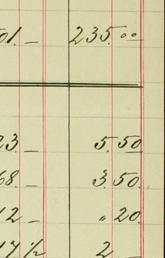 01. — 235.00
23 — 5.50
68. — 3.50
12 — " 20
17 1/2 2 —